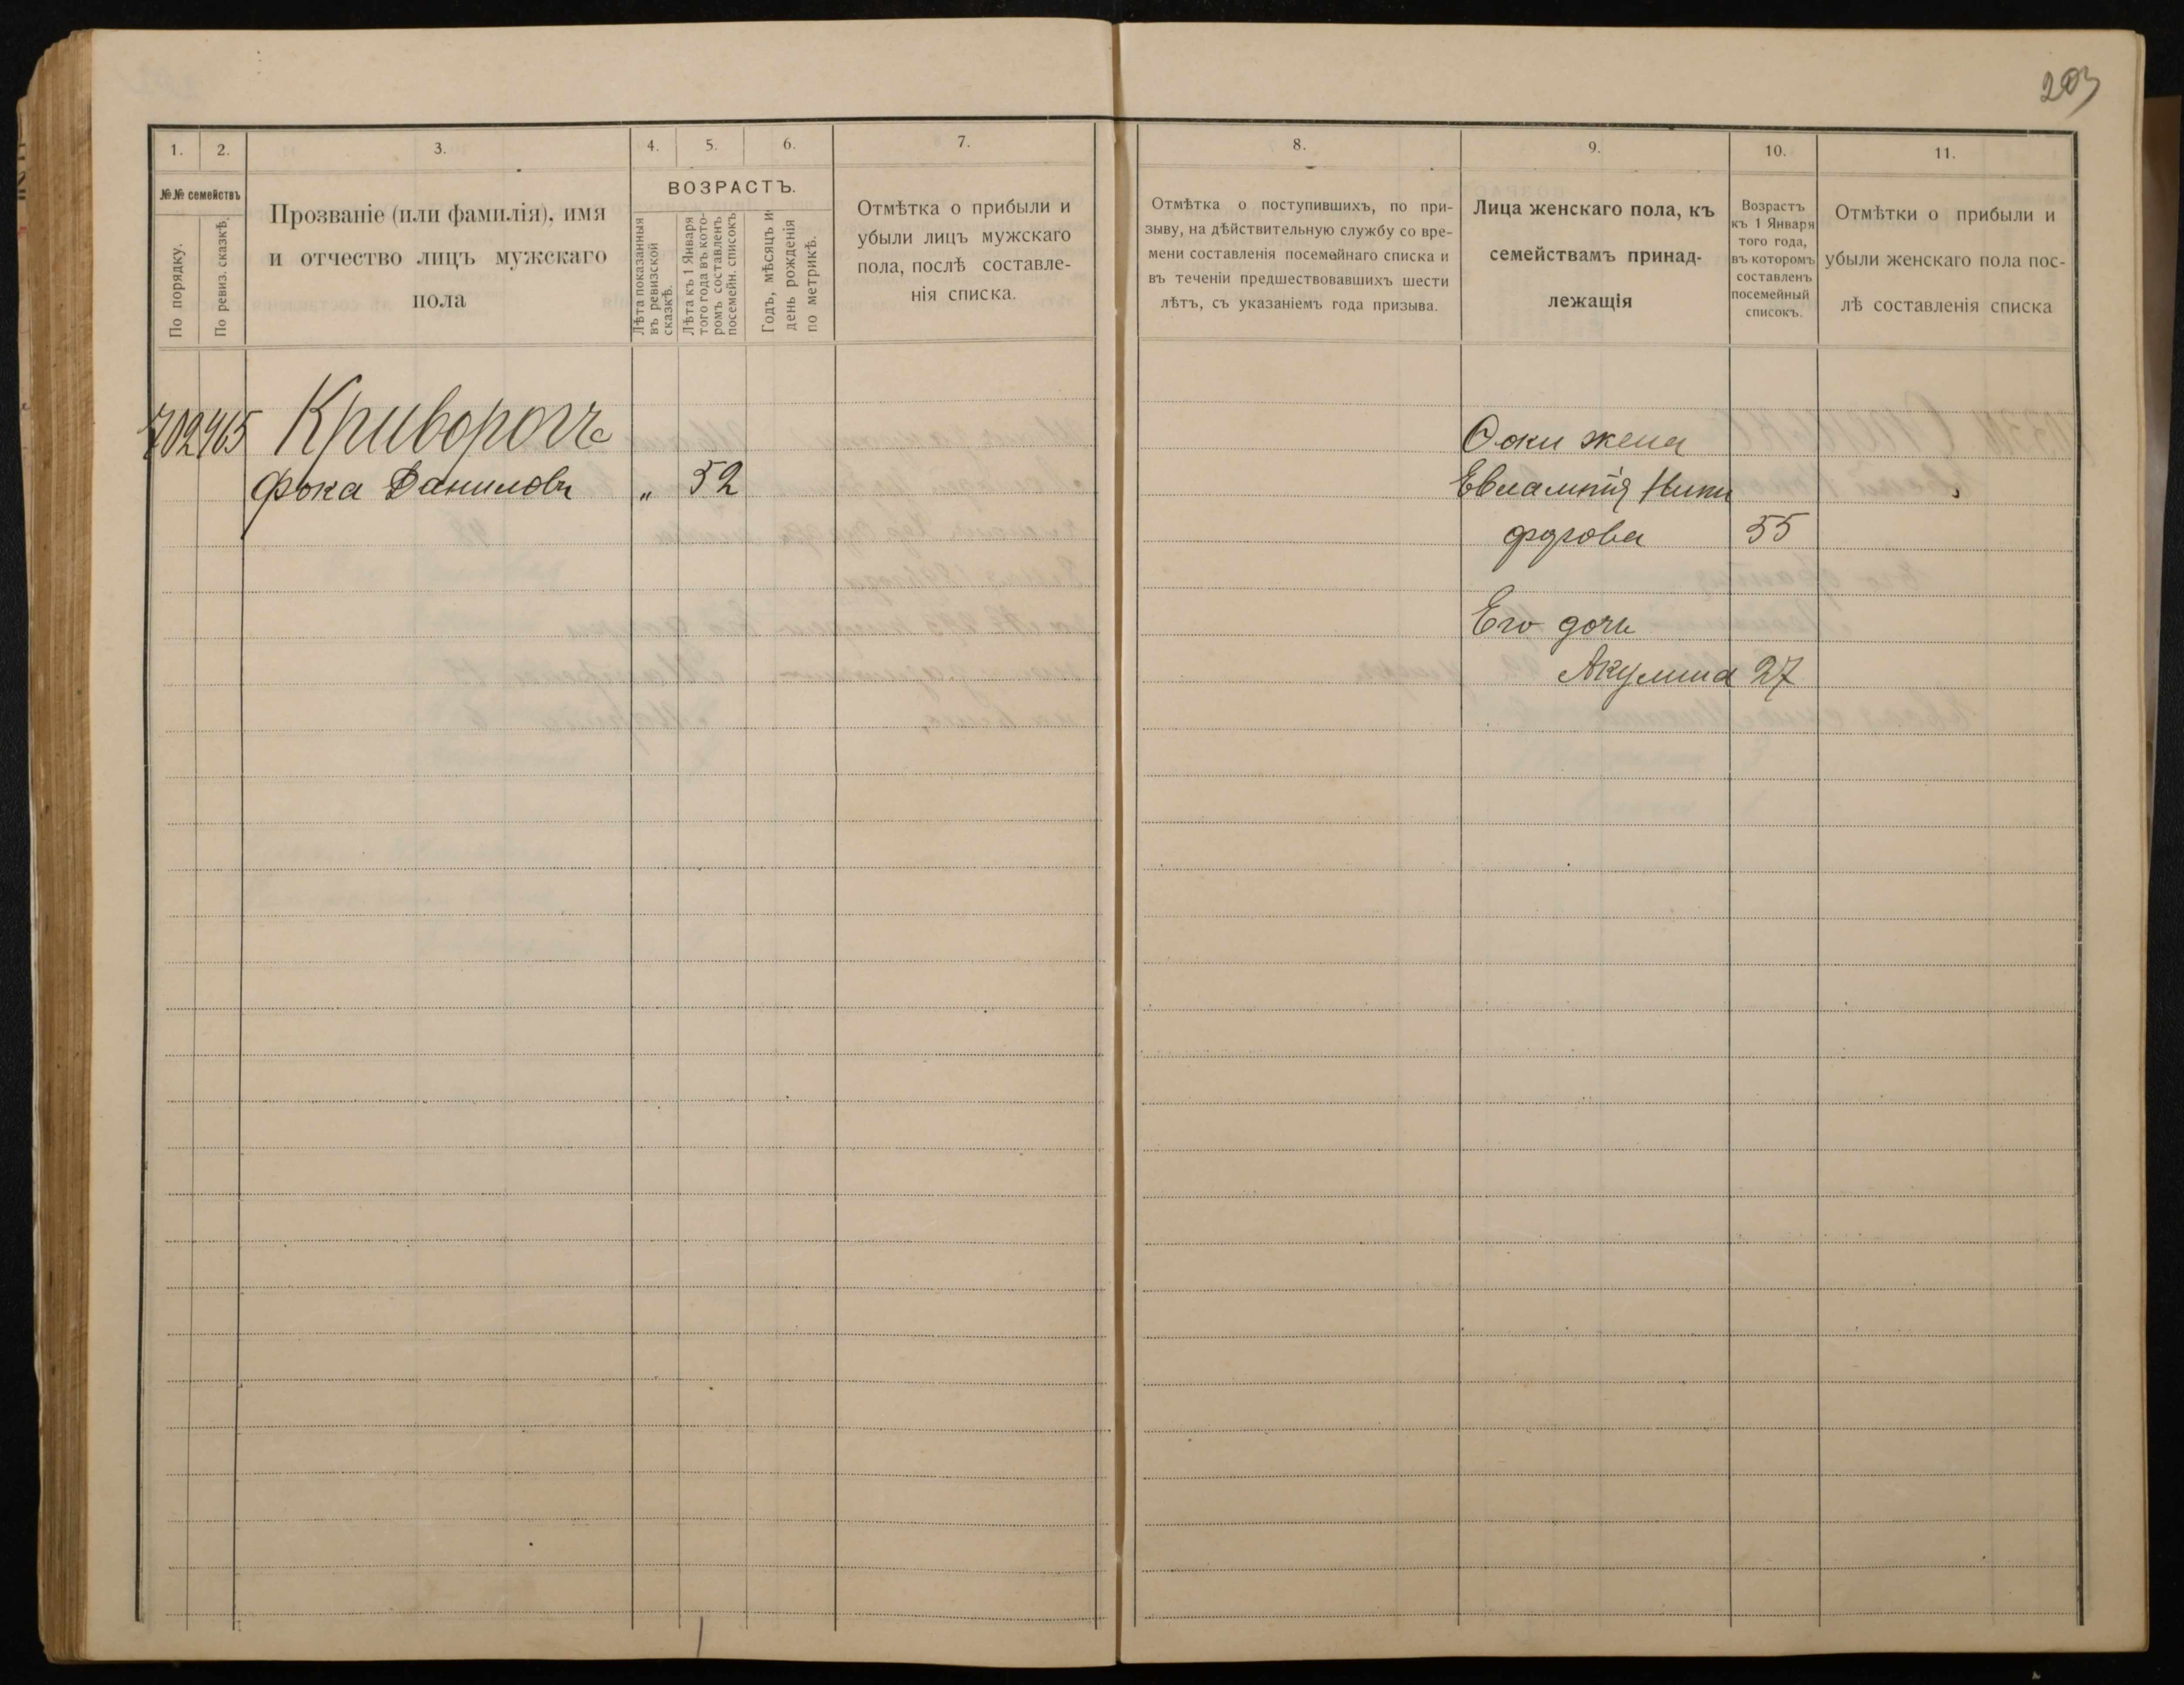 203
1. 2. 3. 4. 5. 6. 7.
№№ семействъ
По порядку.
По ревиз. сказкѣ.
Прозваніе (или фамилія), имя
и отчество лицъ мужскаго
пола
ВОЗРАСТЪ.
Лѣта показанныя
въ ревизской
сказкѣ.
Лѣта къ 1 Января
того года въ кото-
ромъ составленъ
посемейн. списокъ
Годъ, мѣсяцъ и
день рожденія
по метрикѣ.
Отмѣтка о прибыли и
убыли лицъ мужскаго
пола, послѣ составле-
нія списка.
702 465
Фока Даниловъ „ 52
8. 9. 10. 11.
Отмѣтка о поступившихъ, по при-
зыву, на дѣйствительную службу со вре-
мени составленія посемейнаго списка и
въ теченіи предшествовавшихъ шести
лѣтъ, съ указаніемъ года призыва.
Лица женскаго пола, къ
семействамъ принад-
лежащія
Возрастъ
къ 1 Января
того года,
въ которомъ
составленъ
посемейный
списокъ.
Отмѣтки о прибыли и
убыли женскаго пола пос-
лѣ составленія списка
жена
Евлампія Ники
форова 55
Его дочь
Акулина 27